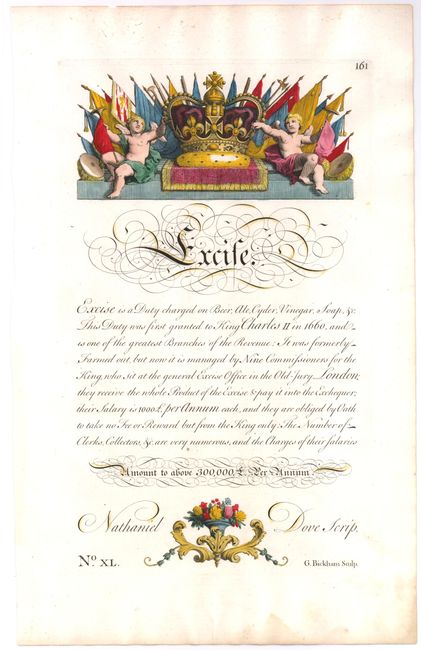 161
Excise.
Excise is a Duty charged on Beer, Ale, Cyder, Vinegar, Soap, &c.
This Duty was first granted to King Charles II in 1660, and
is one of the greatest Branches of the Revenue: It was formerly
Farmed out, but now it is managed by Nine Commissioners for the
King, who sit at the general Excise Office in the Old-Jury, London,
they receive the whole Product of the Excise & pay it into the Exchequer;
their Salary is 1000£. per Annum each, and they are obliged by Oath
to take no Fee or Reward but from the King only. The Number of
Clerks, Collectors, &c. are very numerous, and the Charges of their salaries
Amount to above 300,000,£. Per Annum
Nathaniel Dove Scrip.
No. XL.
G. Bickham Sculp.